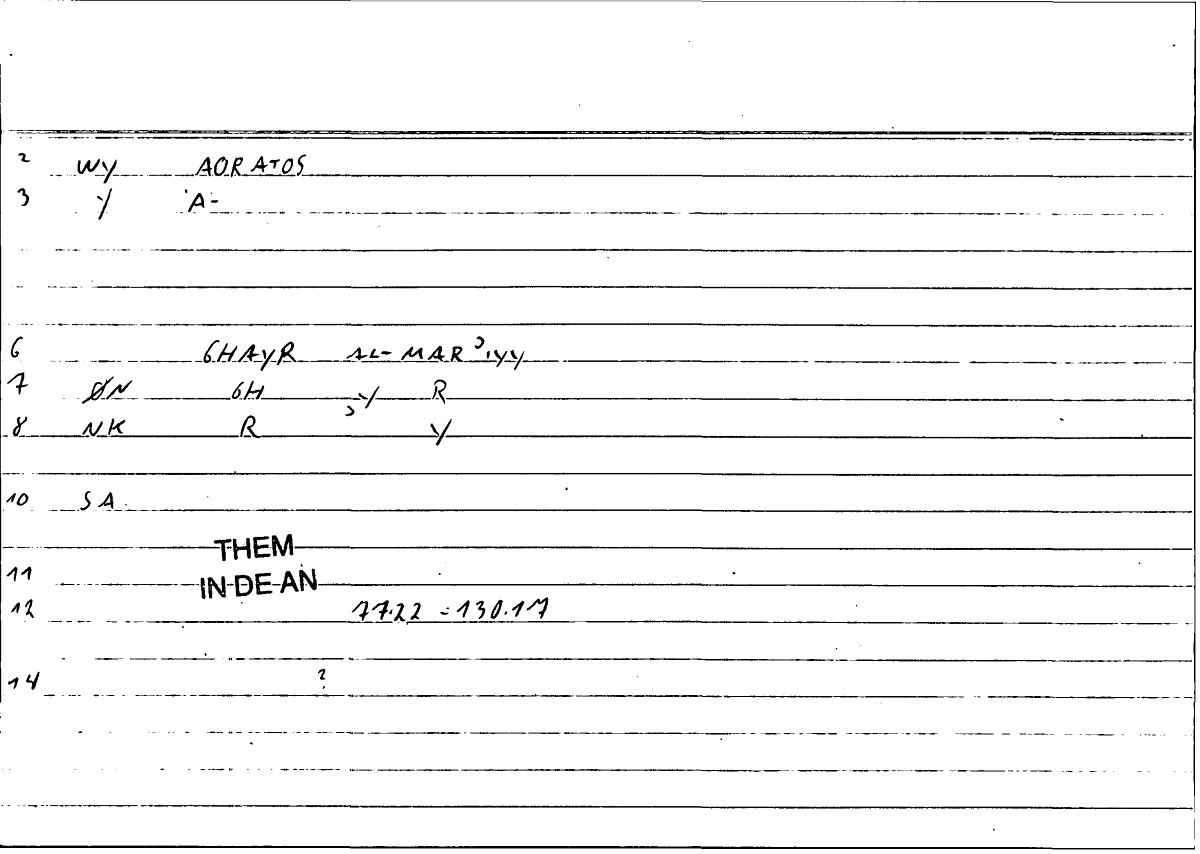 2 WY AORATOS
3 Y 'A-
6 GHAYR AL-MAR'IYY
7 ØN GH 'Y R
8 NK R Y
10 SA
THEM
11 IN DE AN
12 77.22 = 130.17
14 ?